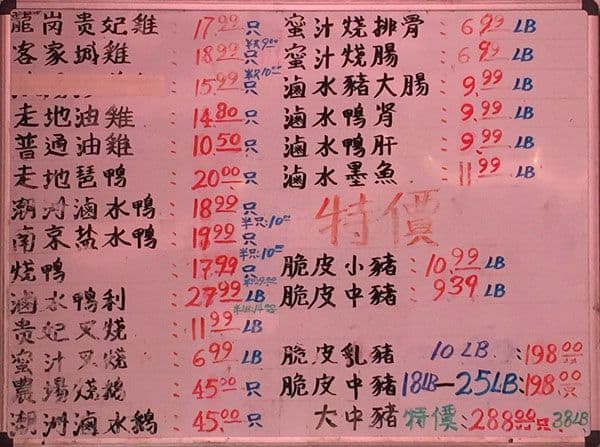 龍崗貴妃雞 : 17.99 只
半只9.00
客家堿雞 : 18.99 只
半只10.00
: 15.99 只
走地油雞 : 14.80 只
普通油雞 : 10.50 只
走地琵鴨 : 20.00 只
潮洲滷水鴨 : 18.99 只
半只:10.00
南京盐水鴨 : 19.99 只
半只:10.00
烧鴨 : 17.99 只
滷水鴨利 : 27.99 LB
貴妃叉烧 : 11.99 LB
蜜汁叉烧 : 6.99 LB
農場烧鵝 : 45.00 只
潮洲滷水鵝 : 45.00 只
蜜汁烧排骨 : 6.99 LB
蜜汁烧腸 : 6.99 LB
滷水豬大腸 : 9.99 LB
滷水鴨肾 : 9.99 LB
滷水鴨肝 : 9.99 LB
滷水墨魚 : 11.99 LB
特價
脆皮小豬 : 10.99 LB
脆皮中豬 : 939 LB
脆皮乳豬 10LB :198.00
脆皮中豬 18LB—25LB:198.00 只
大中豬 特價:288.00 只 38LB